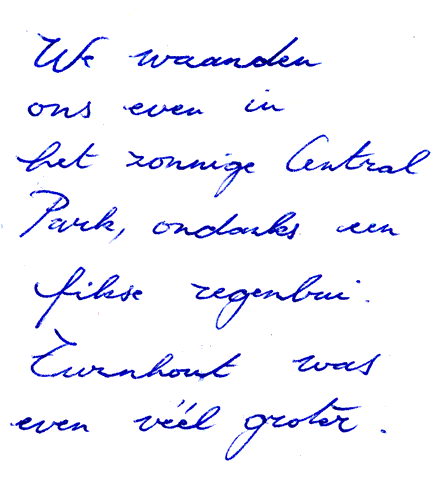 We waanden
ons even in
het zonnige Central
Park, ondanks een
fikse regenbui.
Turnhout was
even véél groter.